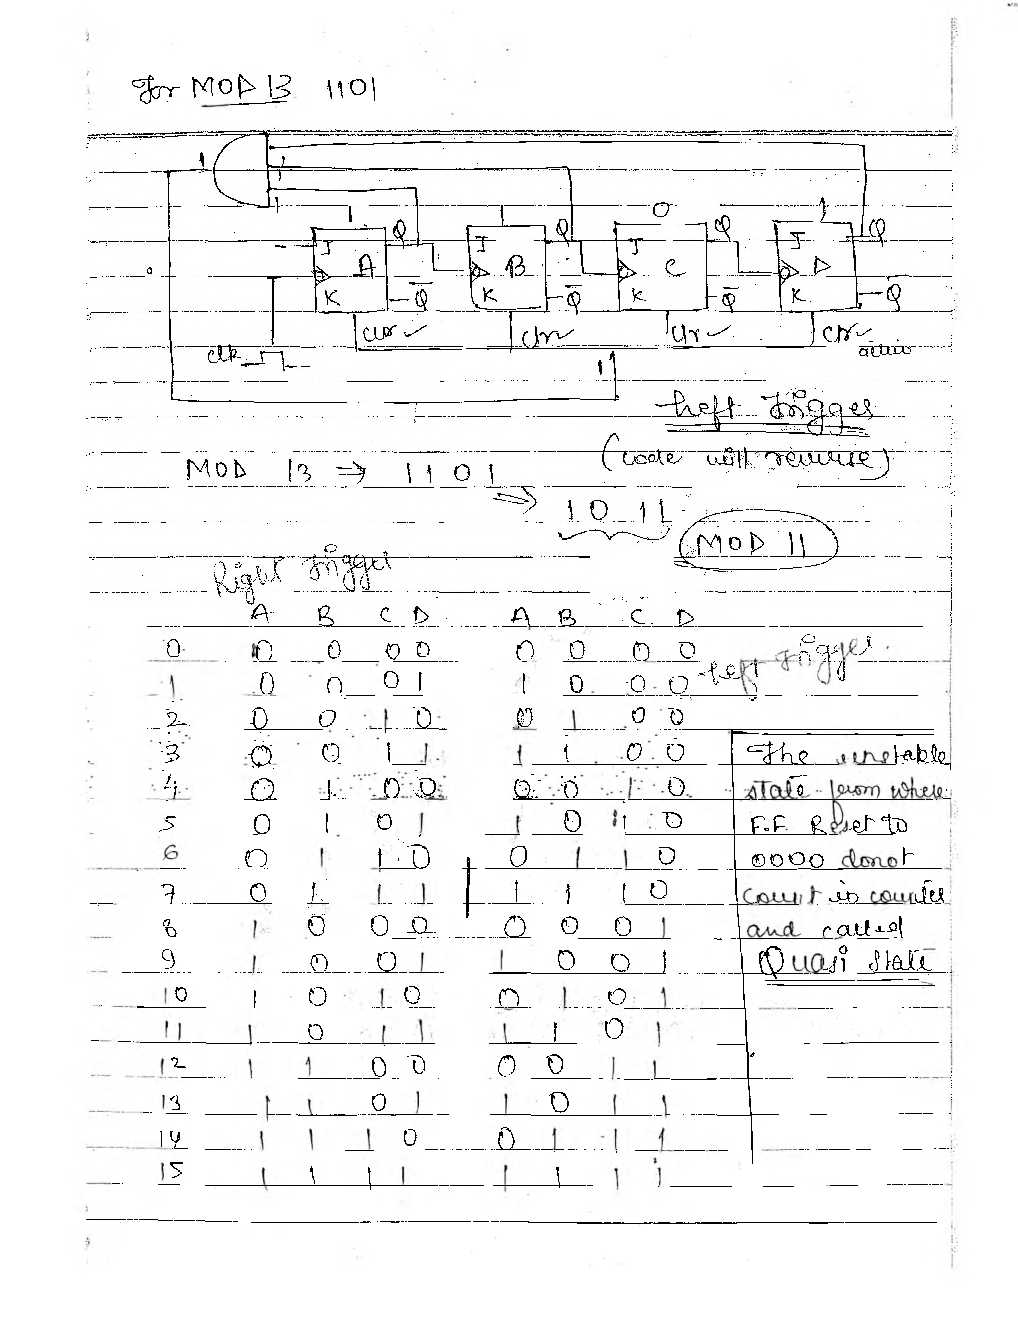 For MOD 13 1101
1 1 1 1
1 1 0 1
J Q J Q J Q J Q
A B C D
K Q̅ K Q̅ K Q̅ K Q̅
Clr ✓ Clr ✓ Clr ✓ Clr ✓
clk
1
Left Trigger
(code will reverse)
MOD 13 ⇒ 1101
⇒ 1011
MOD 11
Right Trigger
A B C D A B C D
0 0 0 0 0 0 0 0 0
Left Trigger
1 0 0 0 1 1 0 0 0
2 0 0 1 0 0 1 0 0
3 0 0 1 1 1 1 0 0
4 0 1 0 0 0 0 1 0
5 0 1 0 1 1 0 1 0
6 0 1 1 0 0 1 1 0
7 0 1 1 1 1 1 1 0
8 1 0 0 0 0 0 0 1
9 1 0 0 1 1 0 0 1
10 1 0 1 0 0 1 0 1
11 1 0 1 1 1 1 0 1
12 1 1 0 0 0 0 1 1
13 1 1 0 1 1 0 1 1
14 1 1 1 0 0 1 1 1
15 1 1 1 1 1 1 1 1
The unstable
state from where
F.F. Reset to
0000 donot
count in counter
and called
Quasi State